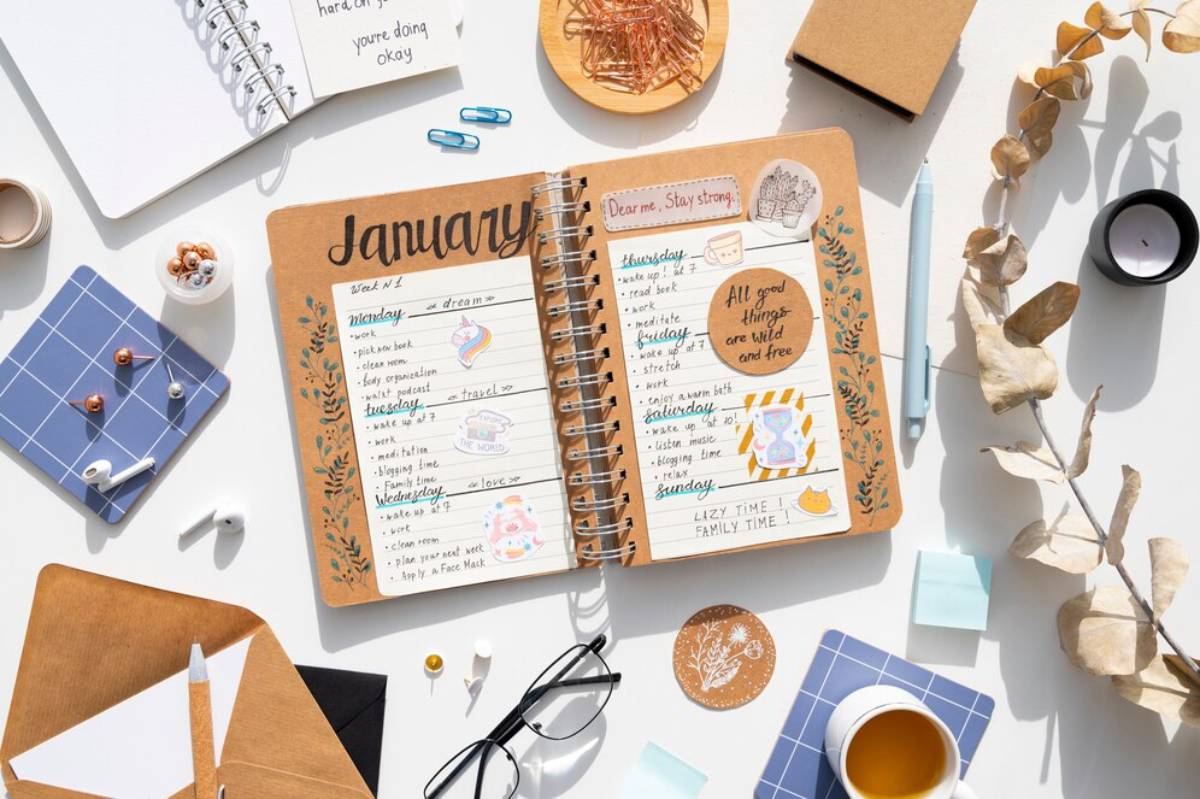 hard on
you're doing
okay
January
Week N 1
dream
monday
• work
• pick new book
• clean room
• body organization
• walk+ podcast
travel
tuesday
• wake up at 7
• work
• meditation
• blogging time
• Family time
EXPLORE
THE WORLD
love
Wednesday
• wake up at 7
• work
• clean room
• plan your next week
• Apply a Face Mack
Dear me, Stay strong.
thursday
• wake up! at 7
• read book
• work
• meditate
All good
things
are wild
and free
friday
• wake up at 7
• stretch
• work
• enjoy a warm bath
saturday
• wake up at 10!
• listen music
• blogging time
• relax
sunday
LAZY TIME !
FAMILY TIME !